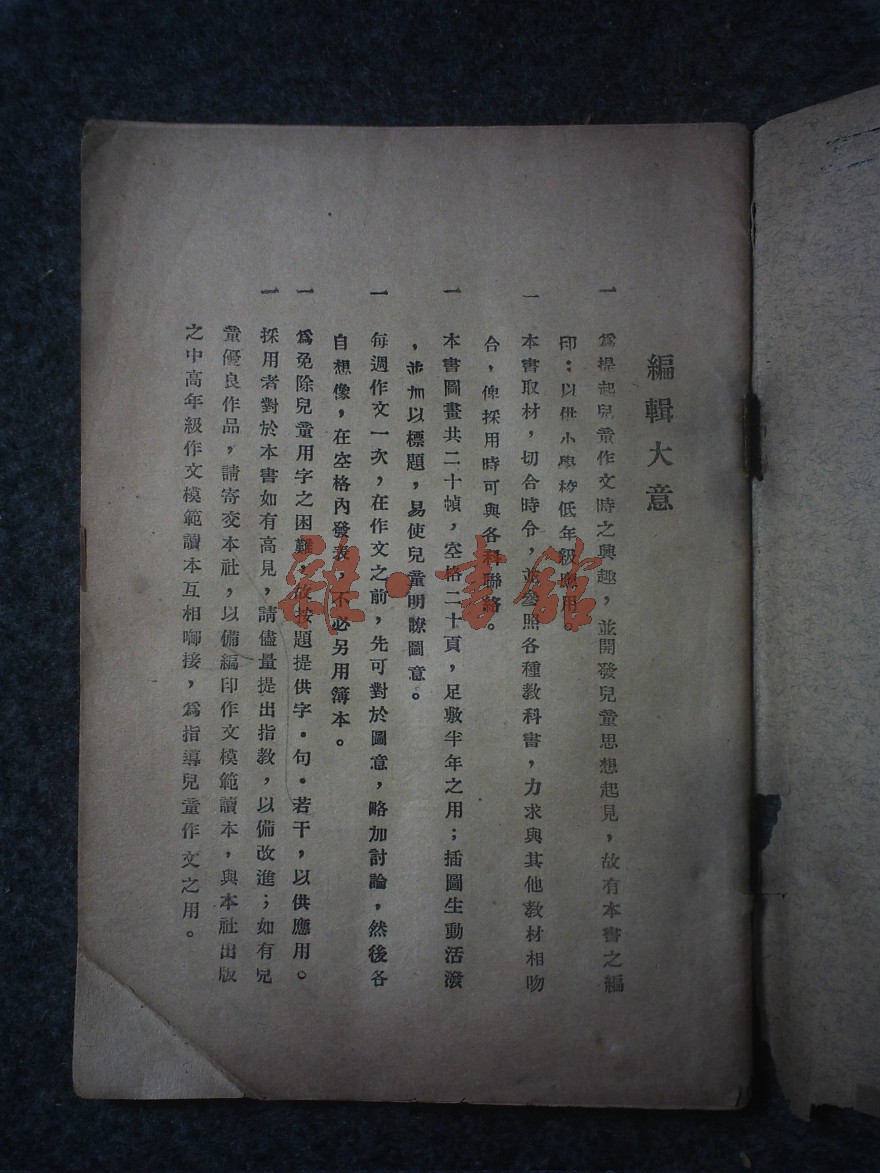 編輯大意
一 爲提起兒童作文時之興趣，並開發兒童思想起見，故有本書之編
印；以供小學校低年級應用。
一 本書取材，切合時令，並參照各種教科書，力求與其他教材相吻
合，俾採用時可與各科聯絡。
一 本書圖畫共二十幀，空格二十頁，足敷半年之用；插圖生動活潑
，並加以標題，易使兒童明瞭圖意。
一 每週作文一次，在作文之前，先可對於圖意，略加討論，然後各
自想像，在空格內發表，不必另用簿本。
一 爲免除兒童用字之困難，故按題提供字．句。若干，以供應用。
一 採用者對於本書如有高見，請儘量提出指教，以備改進；如有兒
童優良作品，請寄交本社，以備編印作文模範讀本，與本社出版
之中高年級作文模範讀本互相啣接，爲指導兒童作文之用。
雜·書館